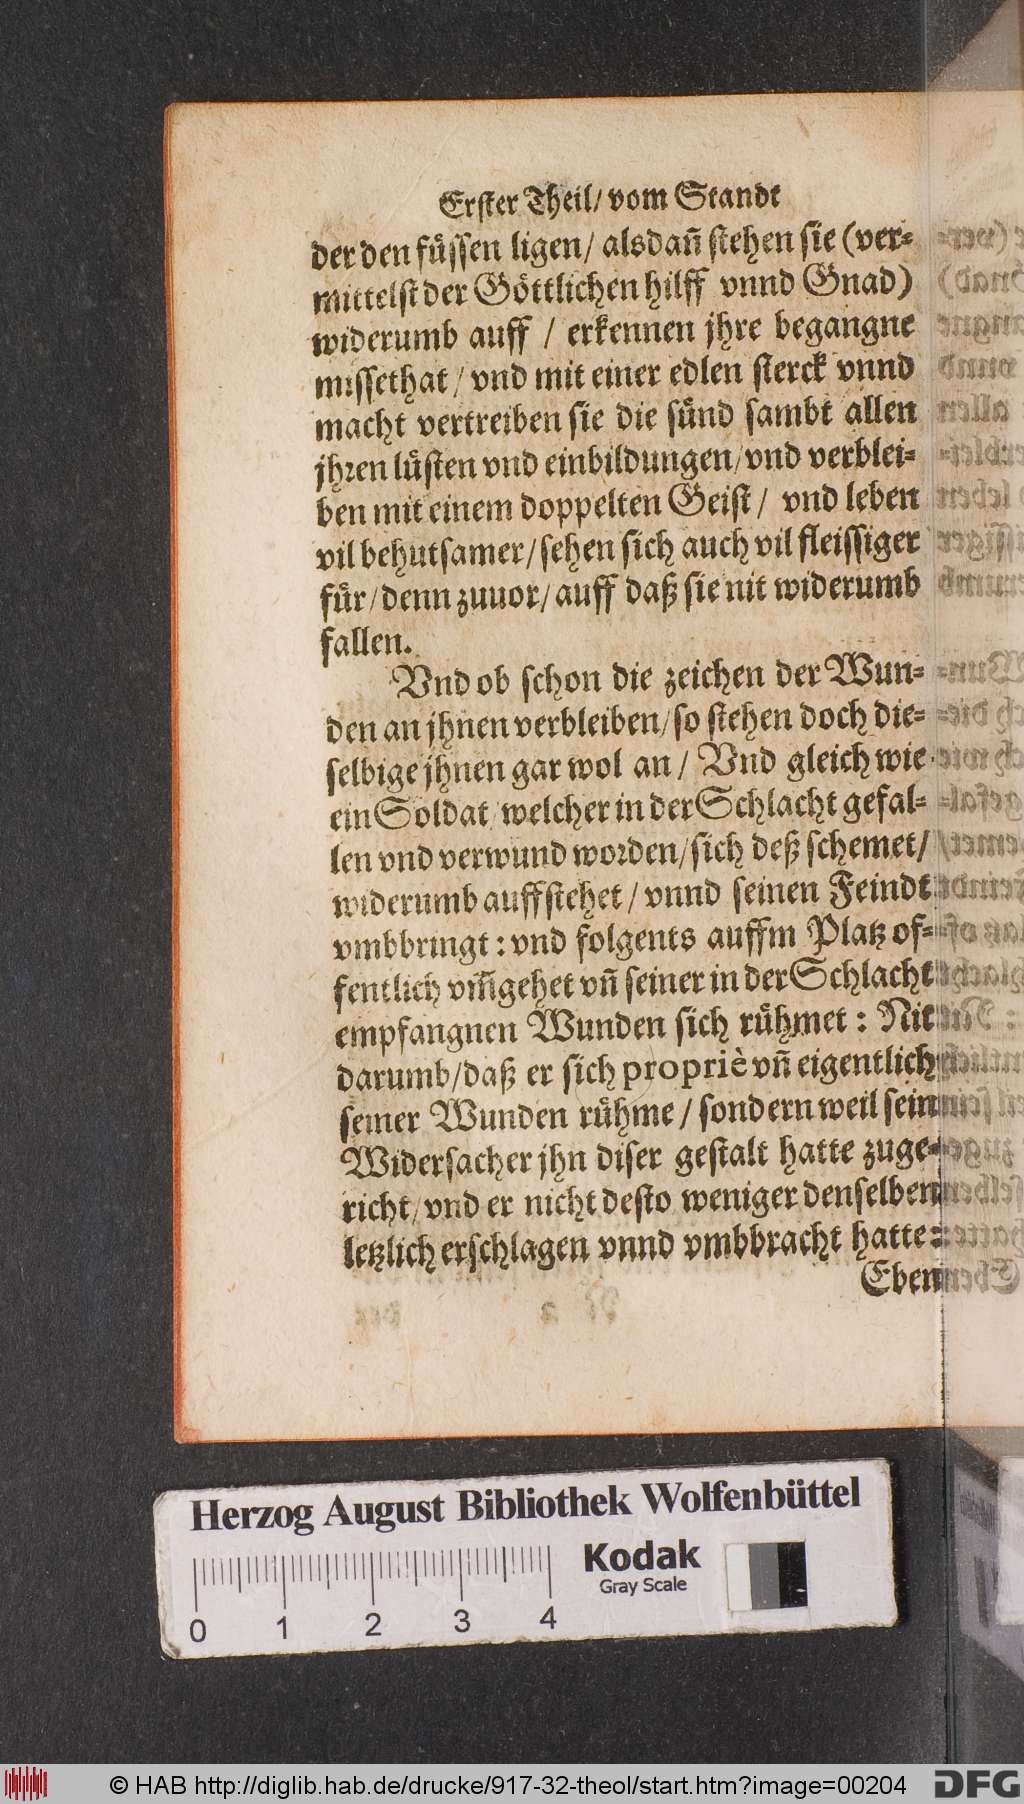 Erster Theil/ vom Standt
der den füssen ligen/ alsdañ stehen sie (ver-
mittelst der Göttlichen hilff vnnd Gnad)
widerumb auff / erkennen jhre begangne
missethat / vnd mit einer edlen sterck vnnd
macht vertreiben sie die sünd sambt allen
jhren lüsten vnd einbildungen/vnd verblei-
ben mit einem doppelten Geist / vnd leben
vil behutsamer/sehen sich auch vil fleissiger
für/denn zuuor/auff daß sie nit widerumb
fallen.
Vnd ob schon die zeichen der Wun-
den an jhnen verbleiben/so stehen doch die-
selbige jhnen gar wol an / Vnd gleich wie
ein Soldat welcher in der Schlacht gefal-
len vnd verwund worden/sich deß schemet/
widerumb auffstehet / vnnd seinen Feindt
vmbbringt : vnd folgents auffm Platz of-
fentlich vm̃gehet vñ seiner in der Schlacht
empfangnen Wunden sich rühmet : Nit
darumb/daß er sich propriè vñ eigentlich
seiner Wunden rühme / sondern weil sein
Widersacher jhn diser gestalt hatte zuge-
richt/vnd er nicht desto weniger denselben
letzlich erschlagen vnnd vmbbracht hatte:
Eben
Herzog August Bibliothek Wolfenbüttel
Kodak
Gray Scale
0 1 2 3 4
© HAB http://diglib.hab.de/drucke/917-32-theol/start.htm?image=00204
DFG